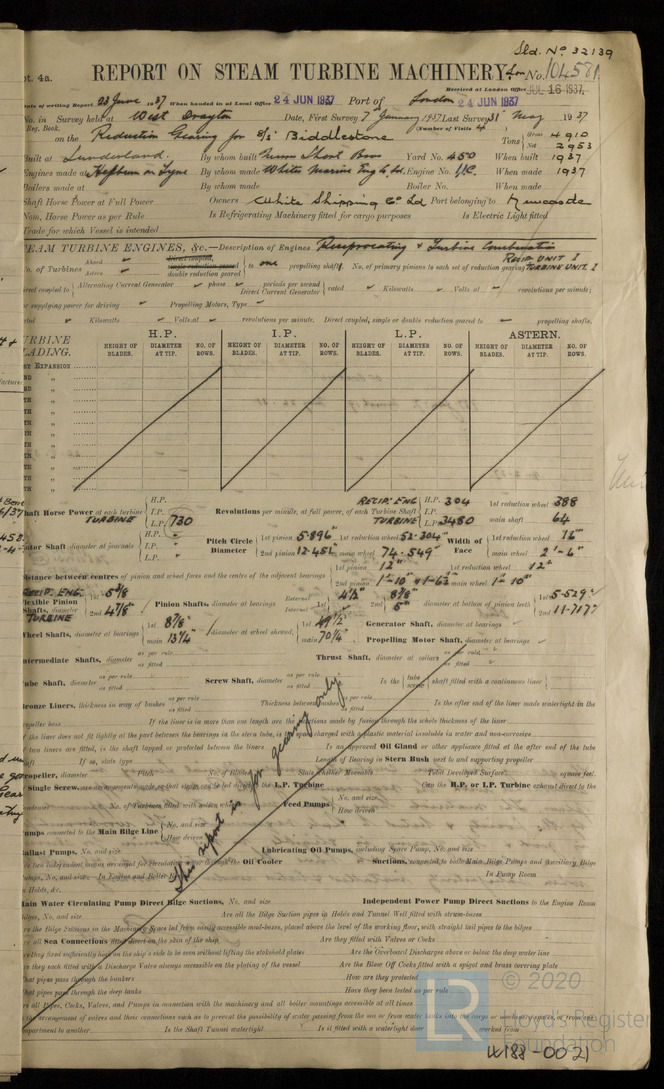 Sld. No. 32139
pt. 4a. REPORT ON STEAM TURBINE MACHINERY. Lon No. 104581
Received at London Office JUL 16 1937
Date of writing Report 23 June 1937 When handed in at Local Office 24 JUN 1937 Port of London 24 JUN 1937
No. in Survey held at West Drayton Date, First Survey 7th January 1937 Last Survey 31st May 1937
Reg. Book. (Number of Visits 4)
on the Reduction Gearing for S/S Biddlestone Tons Gross 4910 Net 2953
Built at Sunderland. By whom built Short Bros Yard No. 450 When built 1937
Engines made at Hebburn on Tyne By whom made Whites Marine Eng Co Ld. Engine No. When made 1937
Boilers made at By whom made Boiler No. When made
Shaft Horse Power at Full Power Owners White Shipping Co Ld Port belonging to Newcastle
Nom. Horse Power as per Rule Is Refrigerating Machinery fitted for cargo purposes Is Electric Light fitted
Trade for which Vessel is intended
STEAM TURBINE ENGINES, &c.—Description of Engines Reciprocating & Turbine Combination
RECIP. UNIT 1
No. of Turbines Ahead Astern Direct coupled, single reduction geared double reduction geared to one propelling shaft. No. of primary pinions to each set of reduction gearing TURBINE UNIT. 1
direct coupled to Alternating Current Generator phase periods per second Direct Current Generator rated Kilowatts Volts at revolutions per minute;
for supplying power for driving Propelling Motors, Type
rated Kilowatts Volts at revolutions per minute. Direct coupled, single or double reduction geared to propelling shafts.
TURBINE BLADING. H.P. I.P. L.P. ASTERN.
HEIGHT OF BLADES. DIAMETER AT TIP. NO. OF ROWS. HEIGHT OF BLADES. DIAMETER AT TIP. NO. OF ROWS. HEIGHT OF BLADES. DIAMETER AT TIP. NO. OF ROWS. HEIGHT OF BLADES. DIAMETER AT TIP. NO. OF ROWS.
EXPANSION
Shaft Horse Power at each turbine H.P. I.P. L.P. TURBINE 730
Revolutions per minute, at full power, of each Turbine Shaft RECIP. ENG H.P. 304 I.P. TURBINE L.P. 3480 1st reduction wheel 388 main shaft 64
Rotor Shaft diameter at journals H.P. I.P. L.P.
Pitch Circle Diameter 1st pinion 5.896" 1st reduction wheel 52.304" 2nd pinion 12.451" main wheel 74.549" Width of Face 1st reduction wheel 16" main wheel 2'-6"
Distance between centres of pinion and wheel faces and the centre of the adjacent bearings 1st pinion 12" 1st reduction wheel 12" 2nd pinion 1'-10" main wheel 1'-10"
Flexible Pinion Shafts, diameter RECIP. ENG. 1st 5 3/8 TURBINE 2nd 4 7/8" Pinion Shafts, diameter at bearings External Internal 1st 4 1/2" 2nd 8 7/8" 5" diameter at bottom of pinion teeth 1st 5.529" 2nd 11.717"
Wheel Shafts, diameter at bearings 1st 8 7/8" main 13 1/4" diameter at wheel shroud, 1st 49 1/2" main 70 1/4" Generator Shaft, diameter at bearings
Propelling Motor Shaft, diameter at bearings
Intermediate Shafts, diameter as per rule as fitted Thrust Shaft, diameter at collars as per rule fitted
Tube Shaft, diameter as per rule as fitted Screw Shaft, diameter as per rule as fitted Is the tube screw shaft fitted with a continuous liner
Bronze Liners, thickness in way of bushes as per rule as fitted Thickness between bushes as per rule as fitted Is the after end of the liner made watertight in the
propeller boss If the liner is in more than one length are the junctions made by fusion through the whole thickness of the liner
If the liner does not fit tightly at the part between the bearings in the stern tube, is the space charged with a plastic material insoluble in water and non-corrosive
If two liners are fitted, is the shaft lapped or protected between the liners Is an approved Oil Gland or other appliance fitted at the after end of the tube
shaft If so, state type Length of Bearing in Stern Bush next to and supporting propeller
Propeller, diameter Pitch No. of Blades State whether Moveable Total Developed Surface square feet.
If Single Screw, are arrangements made so that steam can be led direct to the L.P. Turbine Can the H.P. or I.P. Turbine exhaust direct to the
Condenser No. of Turbines fitted with astern wheels Feed Pumps No. and size How driven
Pumps connected to the Main Bilge Line No. and size How driven
Ballast Pumps, No. and size Lubricating Oil Pumps, including Spare Pump, No. and size
Are two independent means arranged for circulating water through the Oil Cooler Suctions, connected to both Main Bilge Pumps and Auxiliary Bilge
Pumps, No. and size:— In Engine and Boiler Room In Pump Room
In Holds, &c.
Main Water Circulating Pump Direct Bilge Suctions, No. and size Independent Power Pump Direct Suctions to the Engine Room
Bilges, No. and size Are all the Bilge Suction pipes in Holds and Tunnel Well fitted with strum-boxes
Are the Bilge Suctions in the Machinery Space led from easily accessible mud-boxes, placed above the level of the working floor, with straight tail pipes to the bilges
Are all Sea Connections fitted direct on the skin of the ship Are they fitted with Valves or Cocks
Are they fixed sufficiently high on the ship's side to be seen without lifting the stokehold plates Are the Overboard Discharges above or below the deep water line
Are they each fitted with a Discharge Valve always accessible on the plating of the vessel Are the Blow Off Cocks fitted with a spigot and brass covering plate
What pipes pass through the bunkers How are they protected
What pipes pass through the deep tanks Have they been tested as per rule
Are all Pipes, Cocks, Valves, and Pumps in connection with the machinery and all boiler mountings accessible at all times
Is the arrangement of valves and their connections such as to prevent the possibility of water passing from the sea or from water tanks into the cargo or machinery spaces, or from one
compartment to another Is the Shaft Tunnel watertight Is it fitted with a watertight door worked from
This report is for gearing only.
© 2020
LR
Lloyd's Register
Foundation
W188-0021